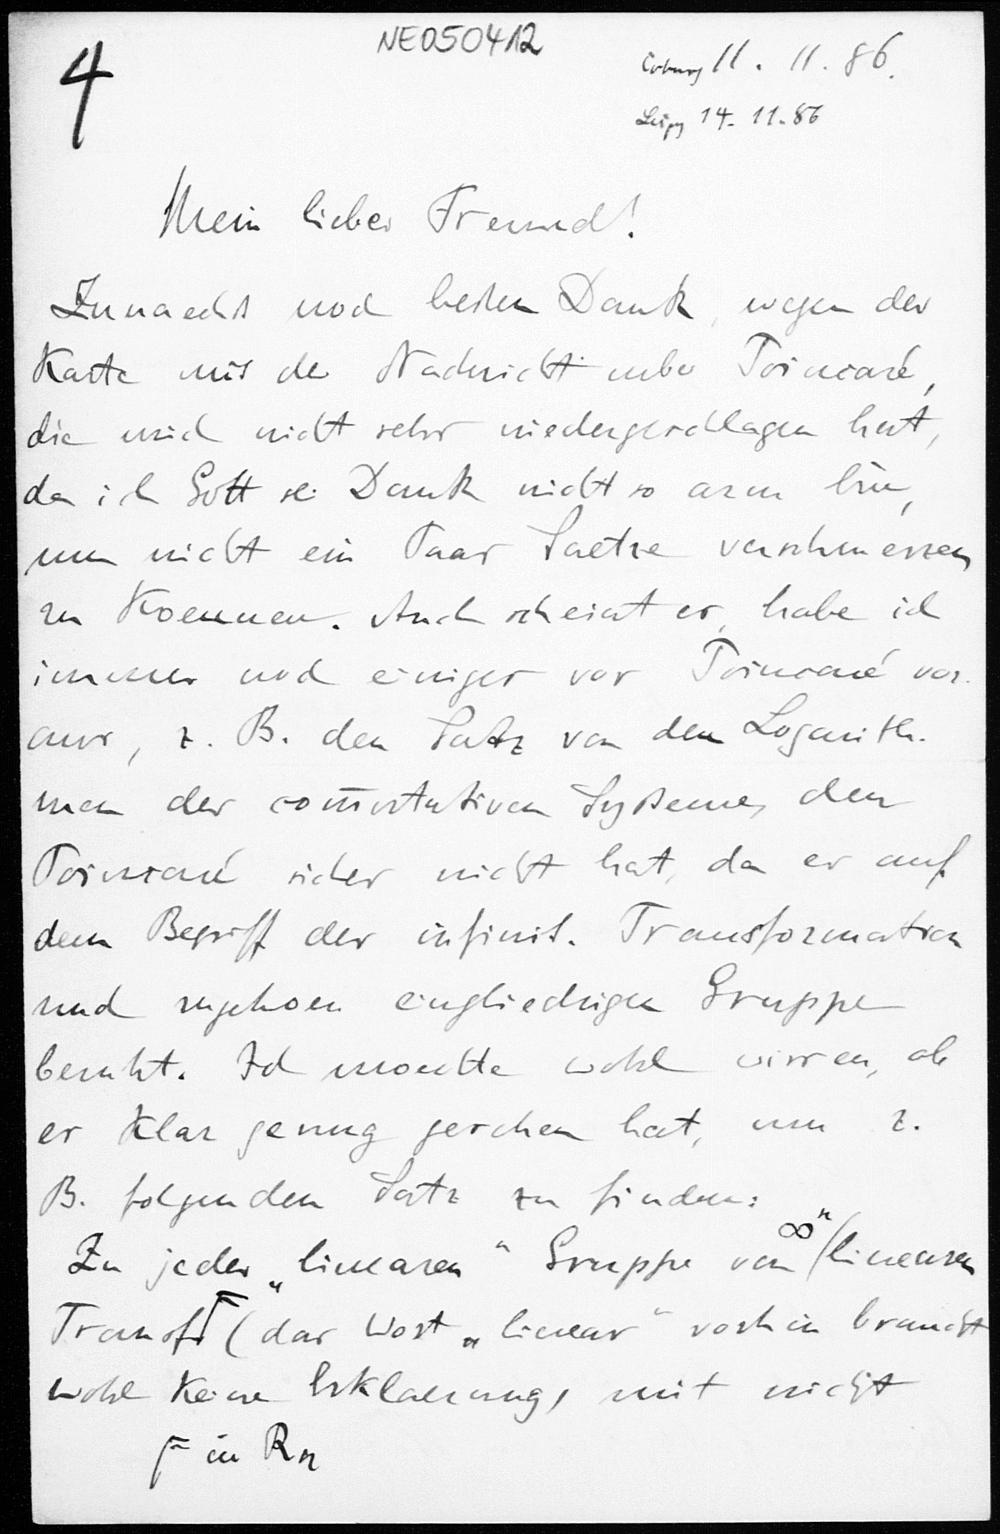 4
NE050412
Coburg 11. 11. 86.
Leipz 14-11-86
Mein lieber Freund!
Zunaechst noch besten Dank, wegen der
Karte mit der Nachricht ueber Poincaré,
die mich nicht sehr niedergeschlagen hat,
da ich Gott sei Dank nicht so arm bin,
um nicht ein Paar Saetze verschmerzen
zu Koennen. Auch scheint es, habe ich
immer noch einiges vor Poincaré vor-
aus, z. B. den Satz von den Logarith-
men der com̅utativen Systeme, den
Poincaré sicher nicht hat, da er auf
dem Begriff der infinit. Transformation
und zugehoer eingliedrigen Gruppe
beruht. Ich moechte wohl wissen, ob
er Klar genug gesehen hat, um z.
B. folgenden Satz zu finden:
Zu jeder „linearen“ Gruppe von ∞ⁿ linearen
Transf. (das Wort „linear“ vorhin braucht
wohl Keine Erklaerung, mit nicht
in Rn